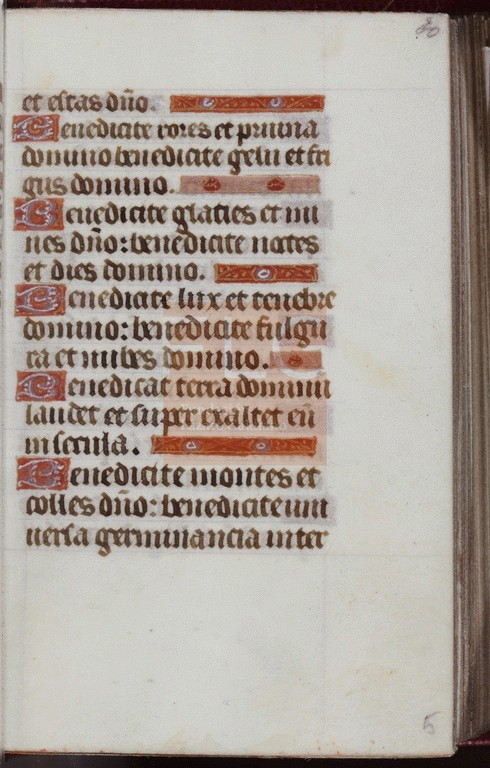 20
et estas dño.
Benedicite rores et pruina
domino benedicite gelu et fri
gus domino.
Benedicite glacies et ni
ues dño: benedicite noctes
et dies domino.
Benedicite lux et tenebre
domino: benedicite fulgu
ra et nubes domino.
Benedicat terra dominū
laudet et super exaltet eū
in secula.
Benedicite montes et
colles dño: benedicite uni
uersa germinancia in ter
5